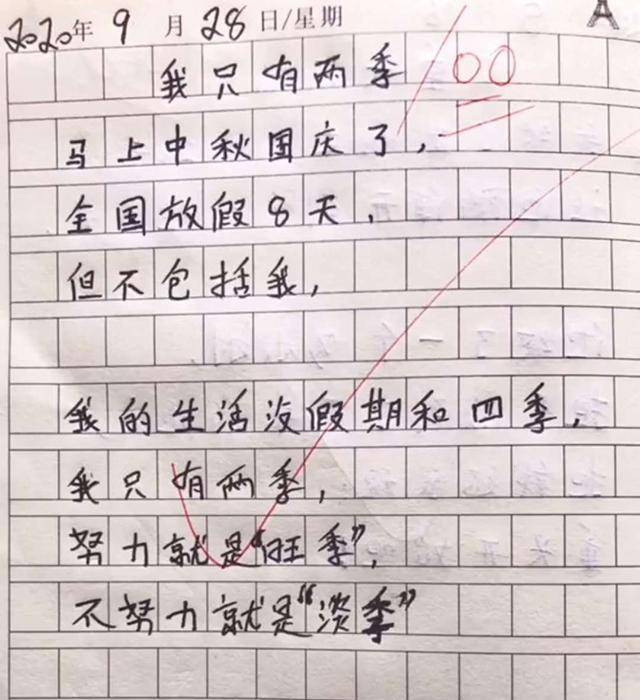 2020年 9 月 28 日/星期 A
我只有两季 100
马上中秋国庆了，
全国放假8天，
但不包括我，
我的生活没假期和四季，
我只有两季，
努力就是“旺季”，
不努力就是“淡季”